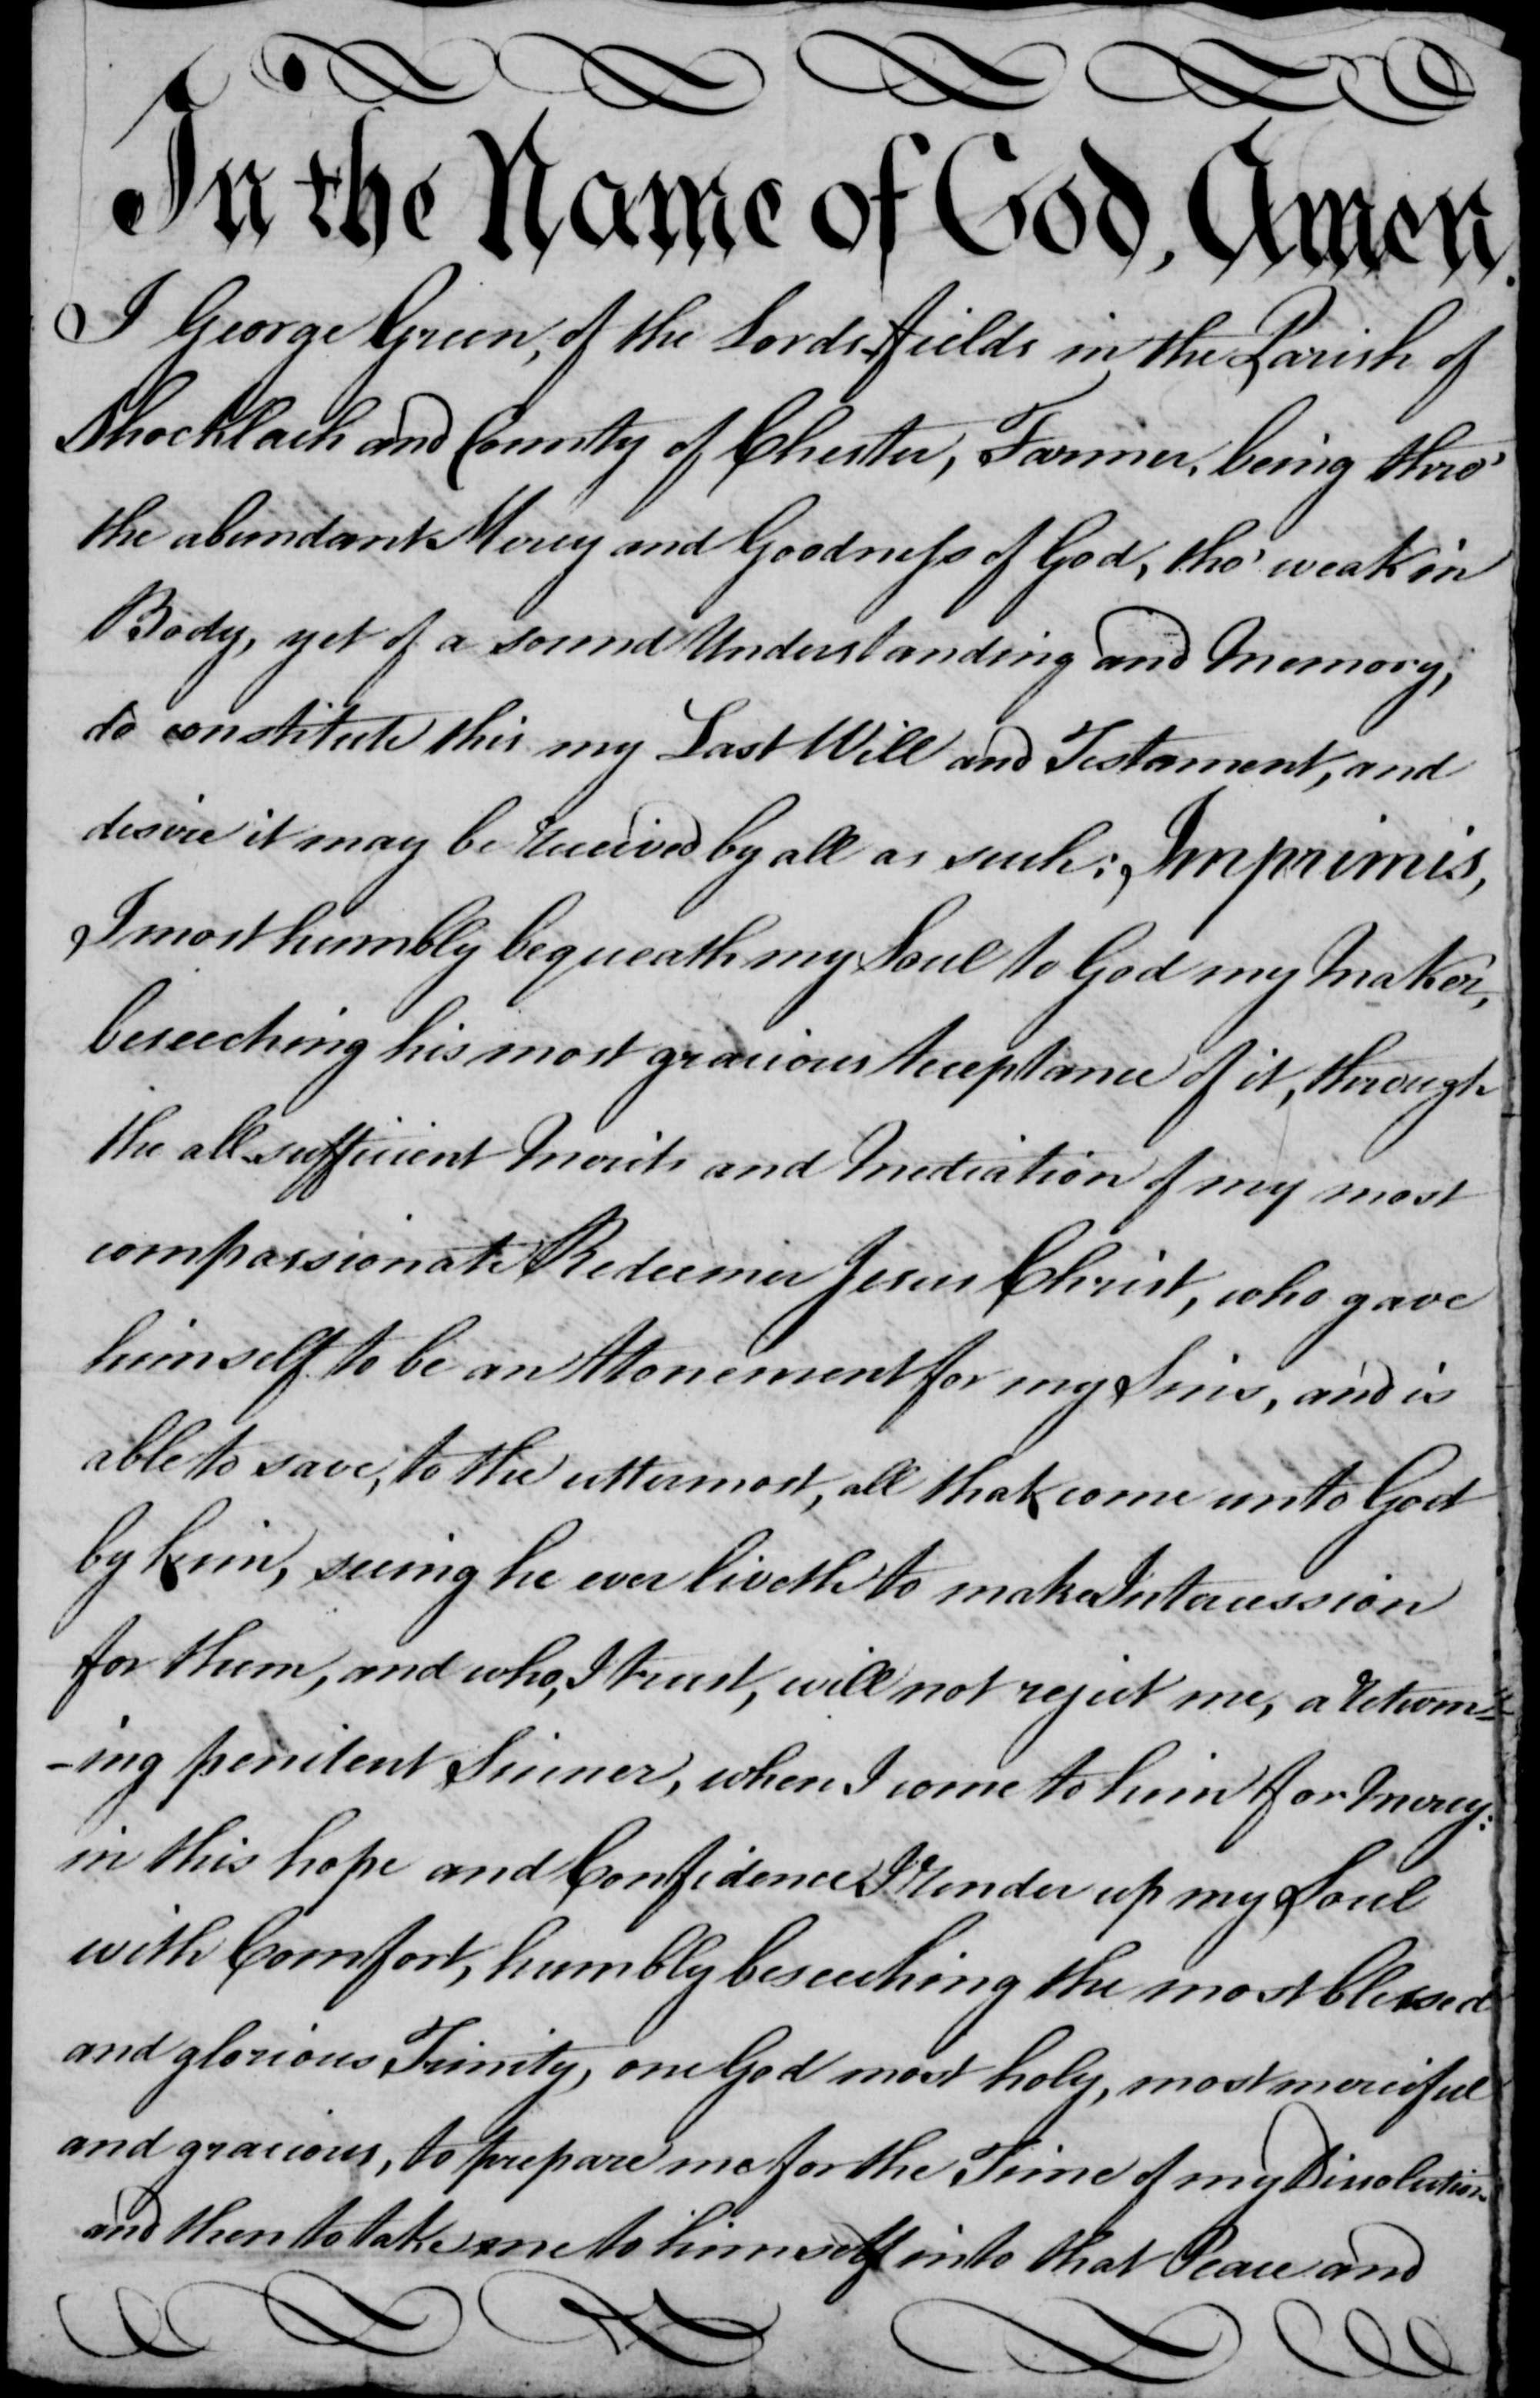 In the Name of God, Amen.
I George Green, of the Lords-fields in the Parish of
Shocklach and County of Chester, Farmer, being thro'
the abundant Mercy and Goodness of God, tho' weak in
Body, yet of a sound Understanding and Memory,
do constitute this my Last Will and Testament, and
desire it may be received by all as such: Imprimis,
I most humbly bequeath my Soul to God my Maker,
beseeching his most gracious Acceptance of it, through
the all-sufficient Merits and Mediation of my most
compassionate Redeemer Jesus Christ, who gave
himself to be an Atonement for my Sins, and is
able to save, to the uttermost, all that come unto God
by him, seeing he ever liveth to make Intercession
for them, and who, I trust, will not reject me, a return=
-ing penitent Sinner, when I come to him for Mercy:
in this hope and Confidence I render up my Soul
with Comfort, humbly beseeching the most blessed
and glorious Trinity, one God most holy, most merciful
and gracious, to prepare me for the Time of my Dissolution
and then to take me to himself into that Peace and